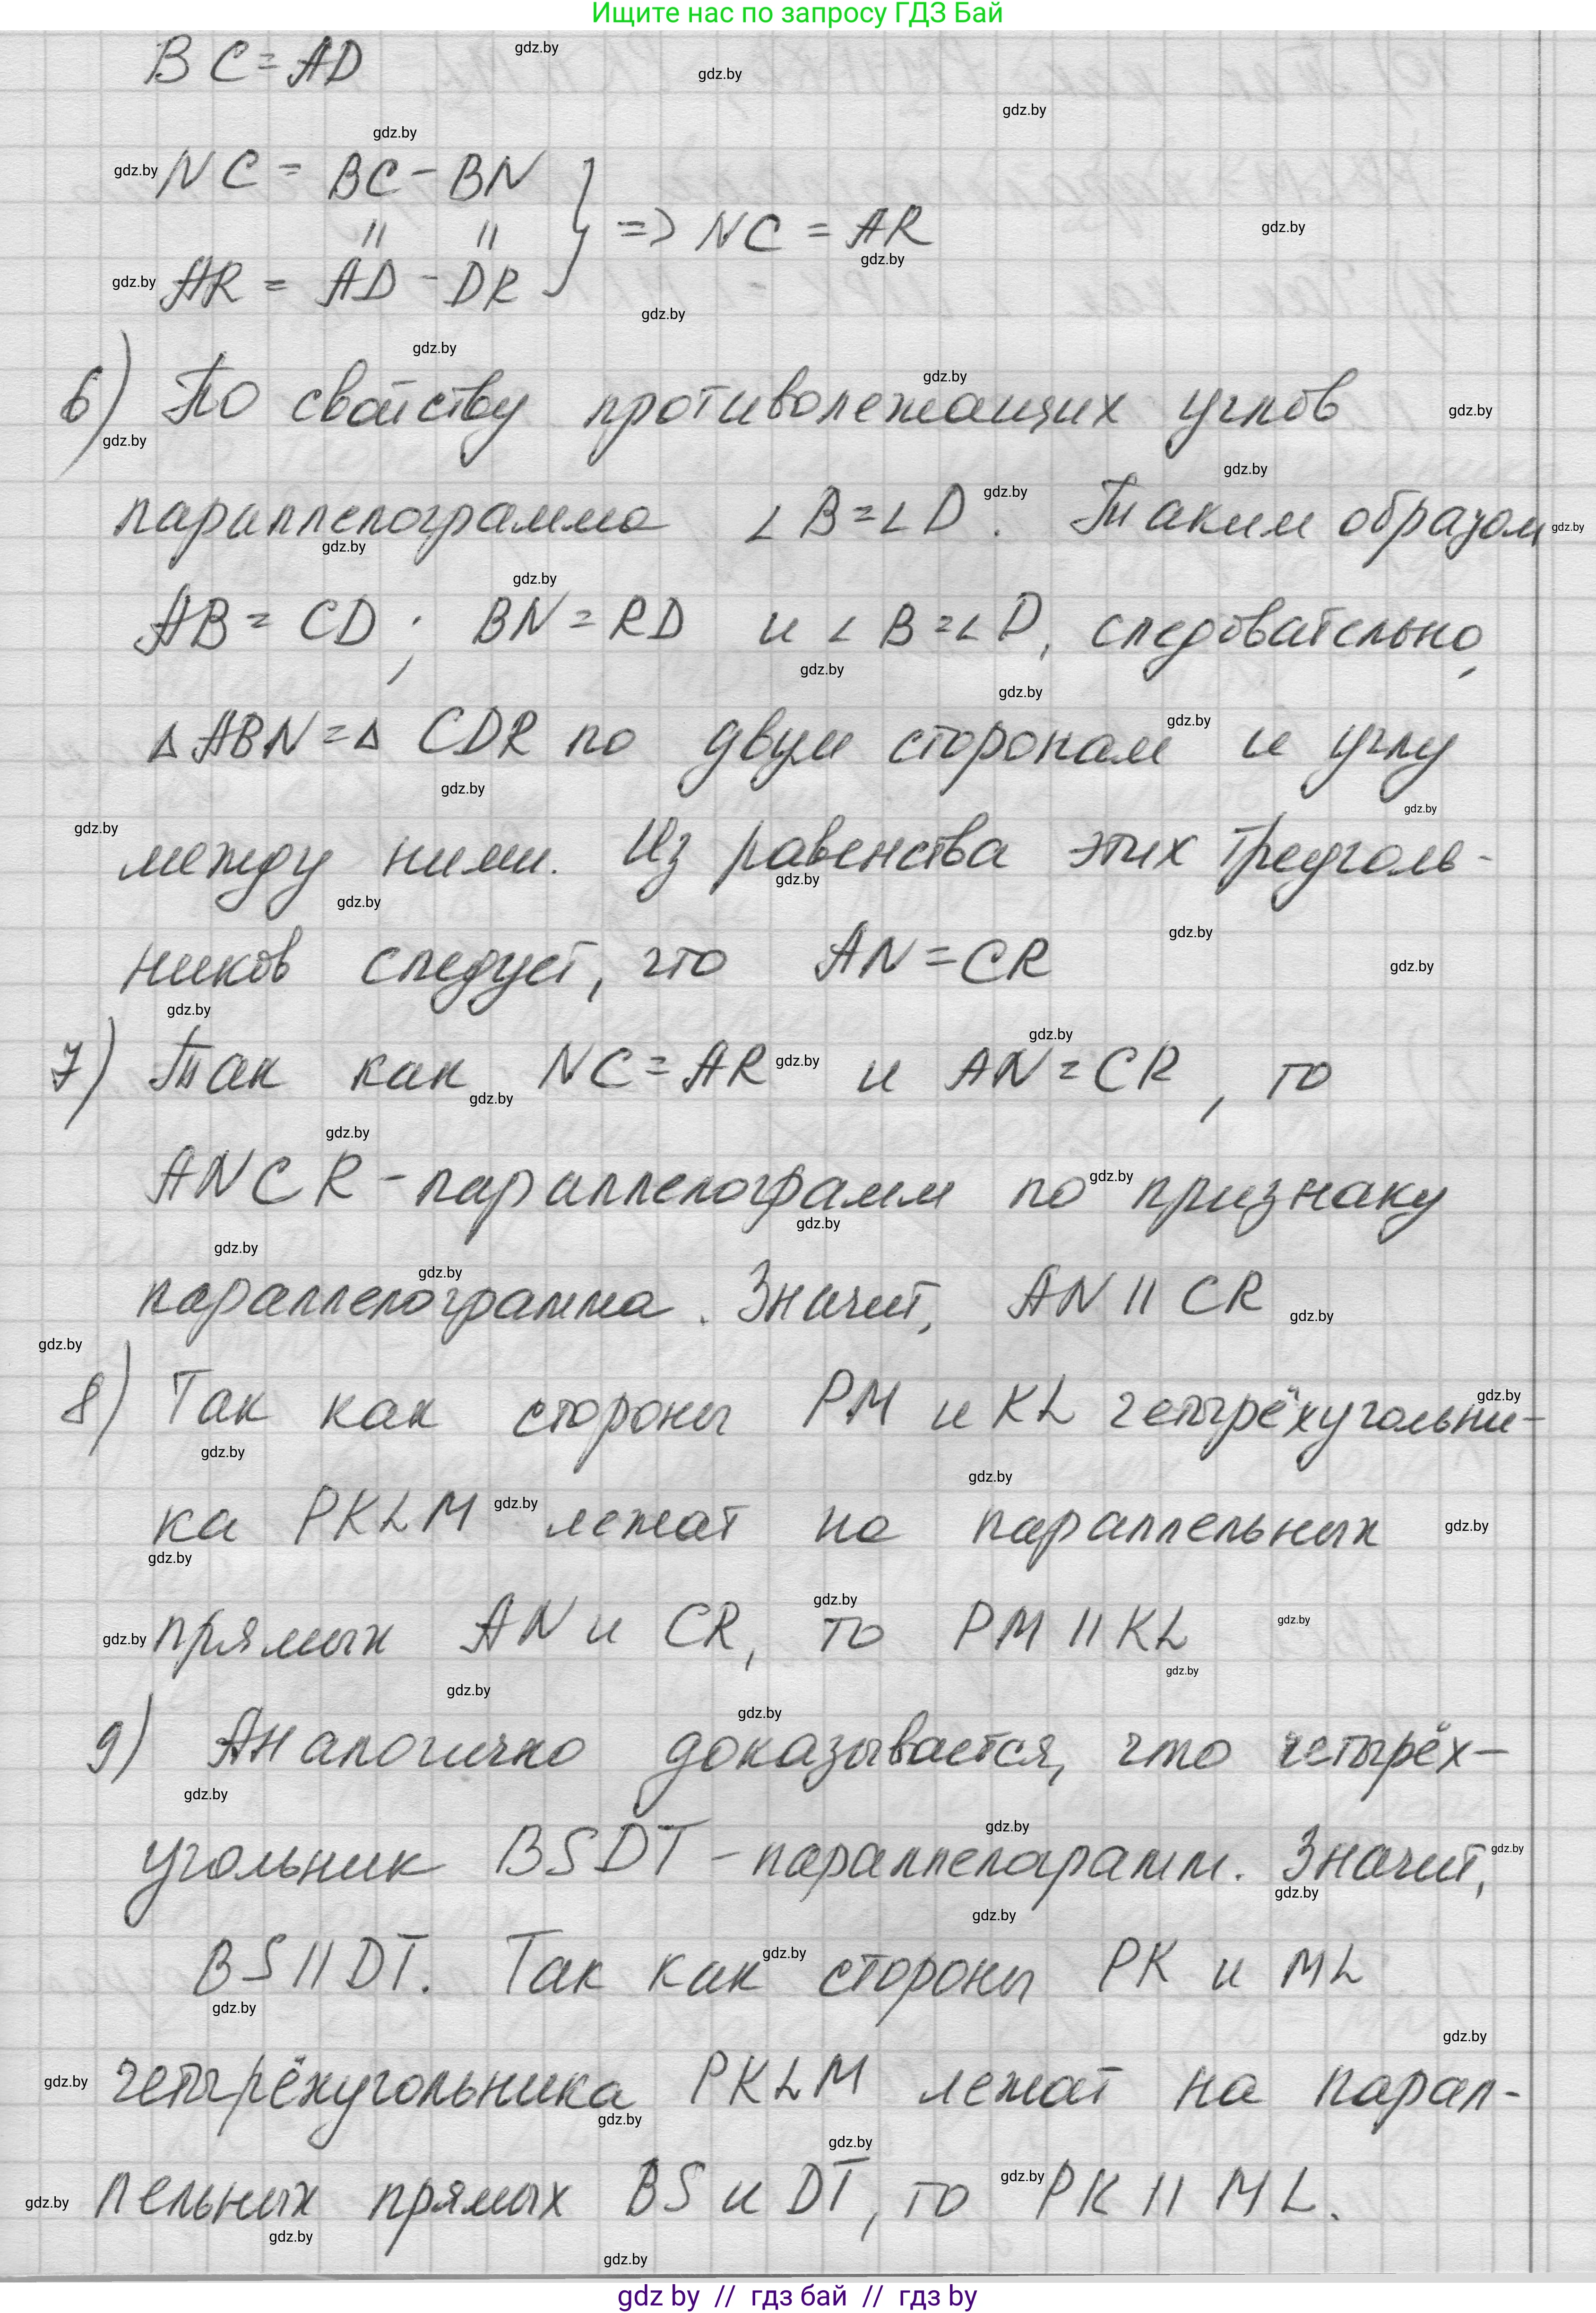 Ищите нас по запросу ГДЗ Бай
BC = AD
NC = BC - BN
=> NC = AR
AR = AD - DR
6) По свойству противолежащих углов
параллелограмма ∠B=∠D. Таким образом
AB = CD; BN = RD и ∠B=∠D, следовательно,
△ABN=△CDR по двум сторонам и углу
между ними. Из равенства этих треуголь-
ников следует, что AN = CR
7) Так как NC = AR и AN = CR, то
ANCR - параллелограмм по признаку
параллелограмма. Значит, AN || CR
8) Так как стороны PM и KL четырёхугольни-
ка PKLM лежат на параллельных
прямых AN и CR, то PM || KL
9) Аналогично доказывается, что четырёх-
угольник BSDT - параллелограмм. Значит,
BS || DT. Так как стороны PK и ML
четырёхугольника PKLM лежат на парал-
лельных прямых BS и DT, то PK || ML.
gdz by // гдз бай // гдз by